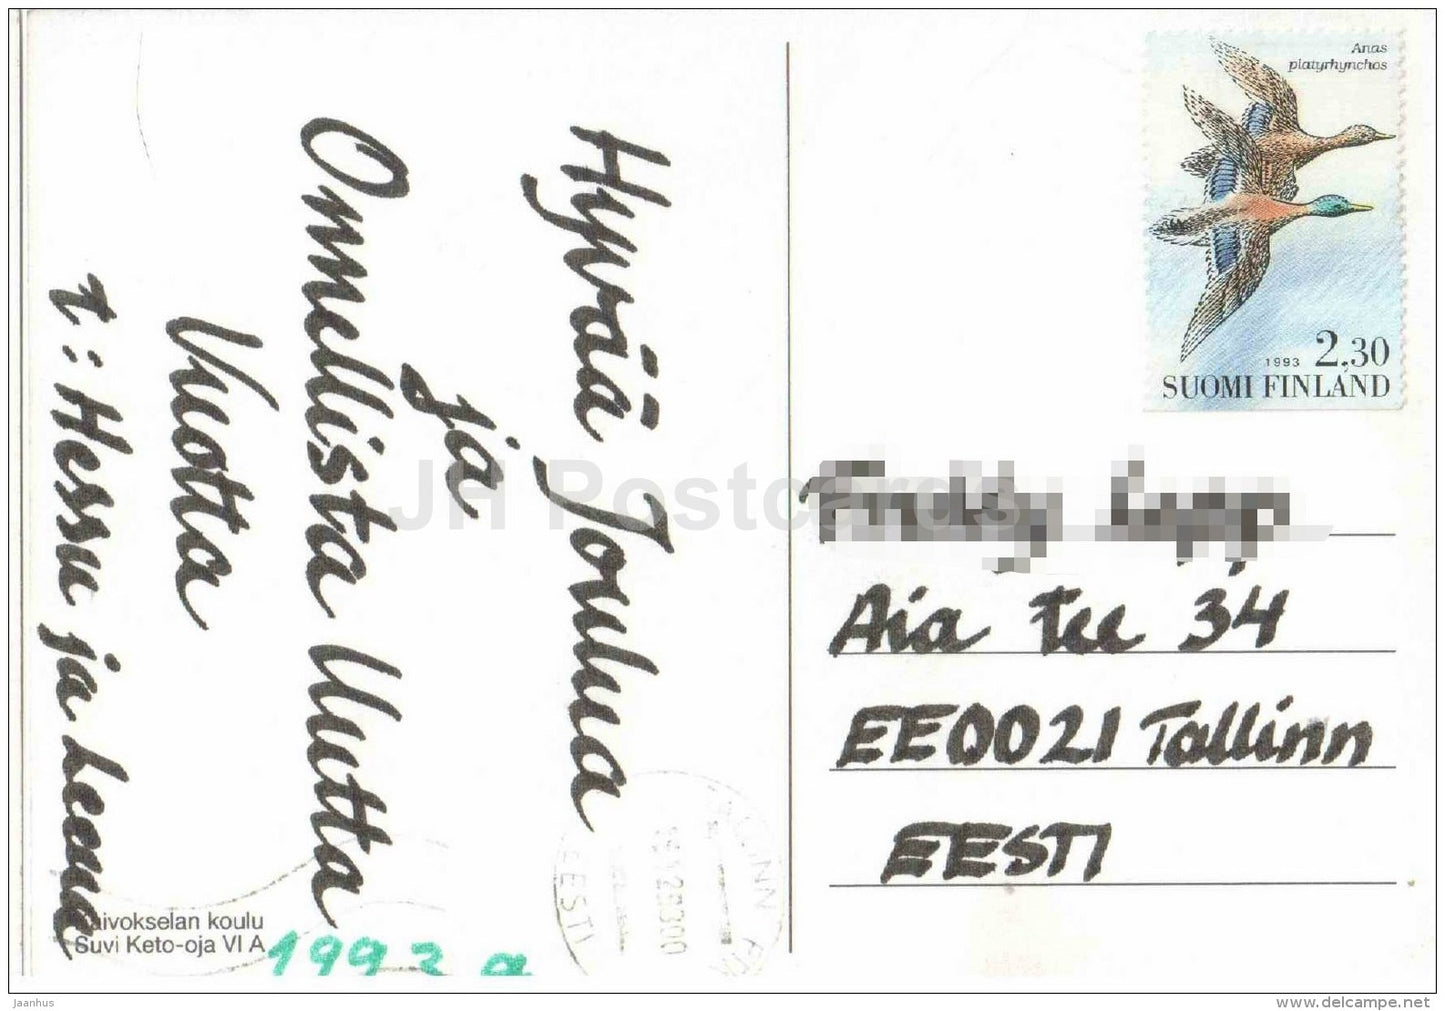 Hyvää Joulua
ja
Onnellista Uutta
Vuotta
t: Hessu ja Leena
Suvi Keto-oja VI A
1993 a
Anas
platyrhynchos
1993 2,30
SUOMI FINLAND
Aia tee 34
EE0021 Tallinn
EESTI
EESTI
JH Postcards
Jaanhus
delcampe.net